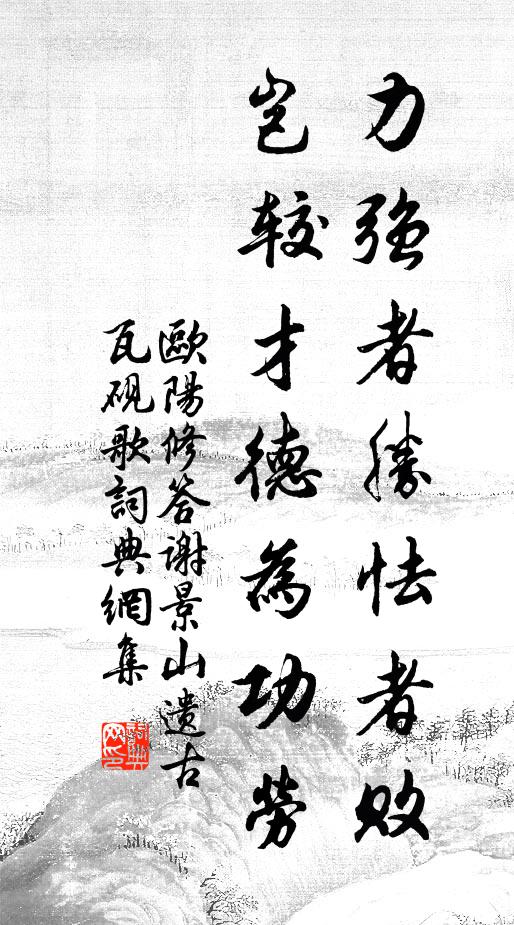 力强者勝怯者敗
豈較才德為功勞
歐陽修答謝景山遺古
瓦硯歌詞典網集